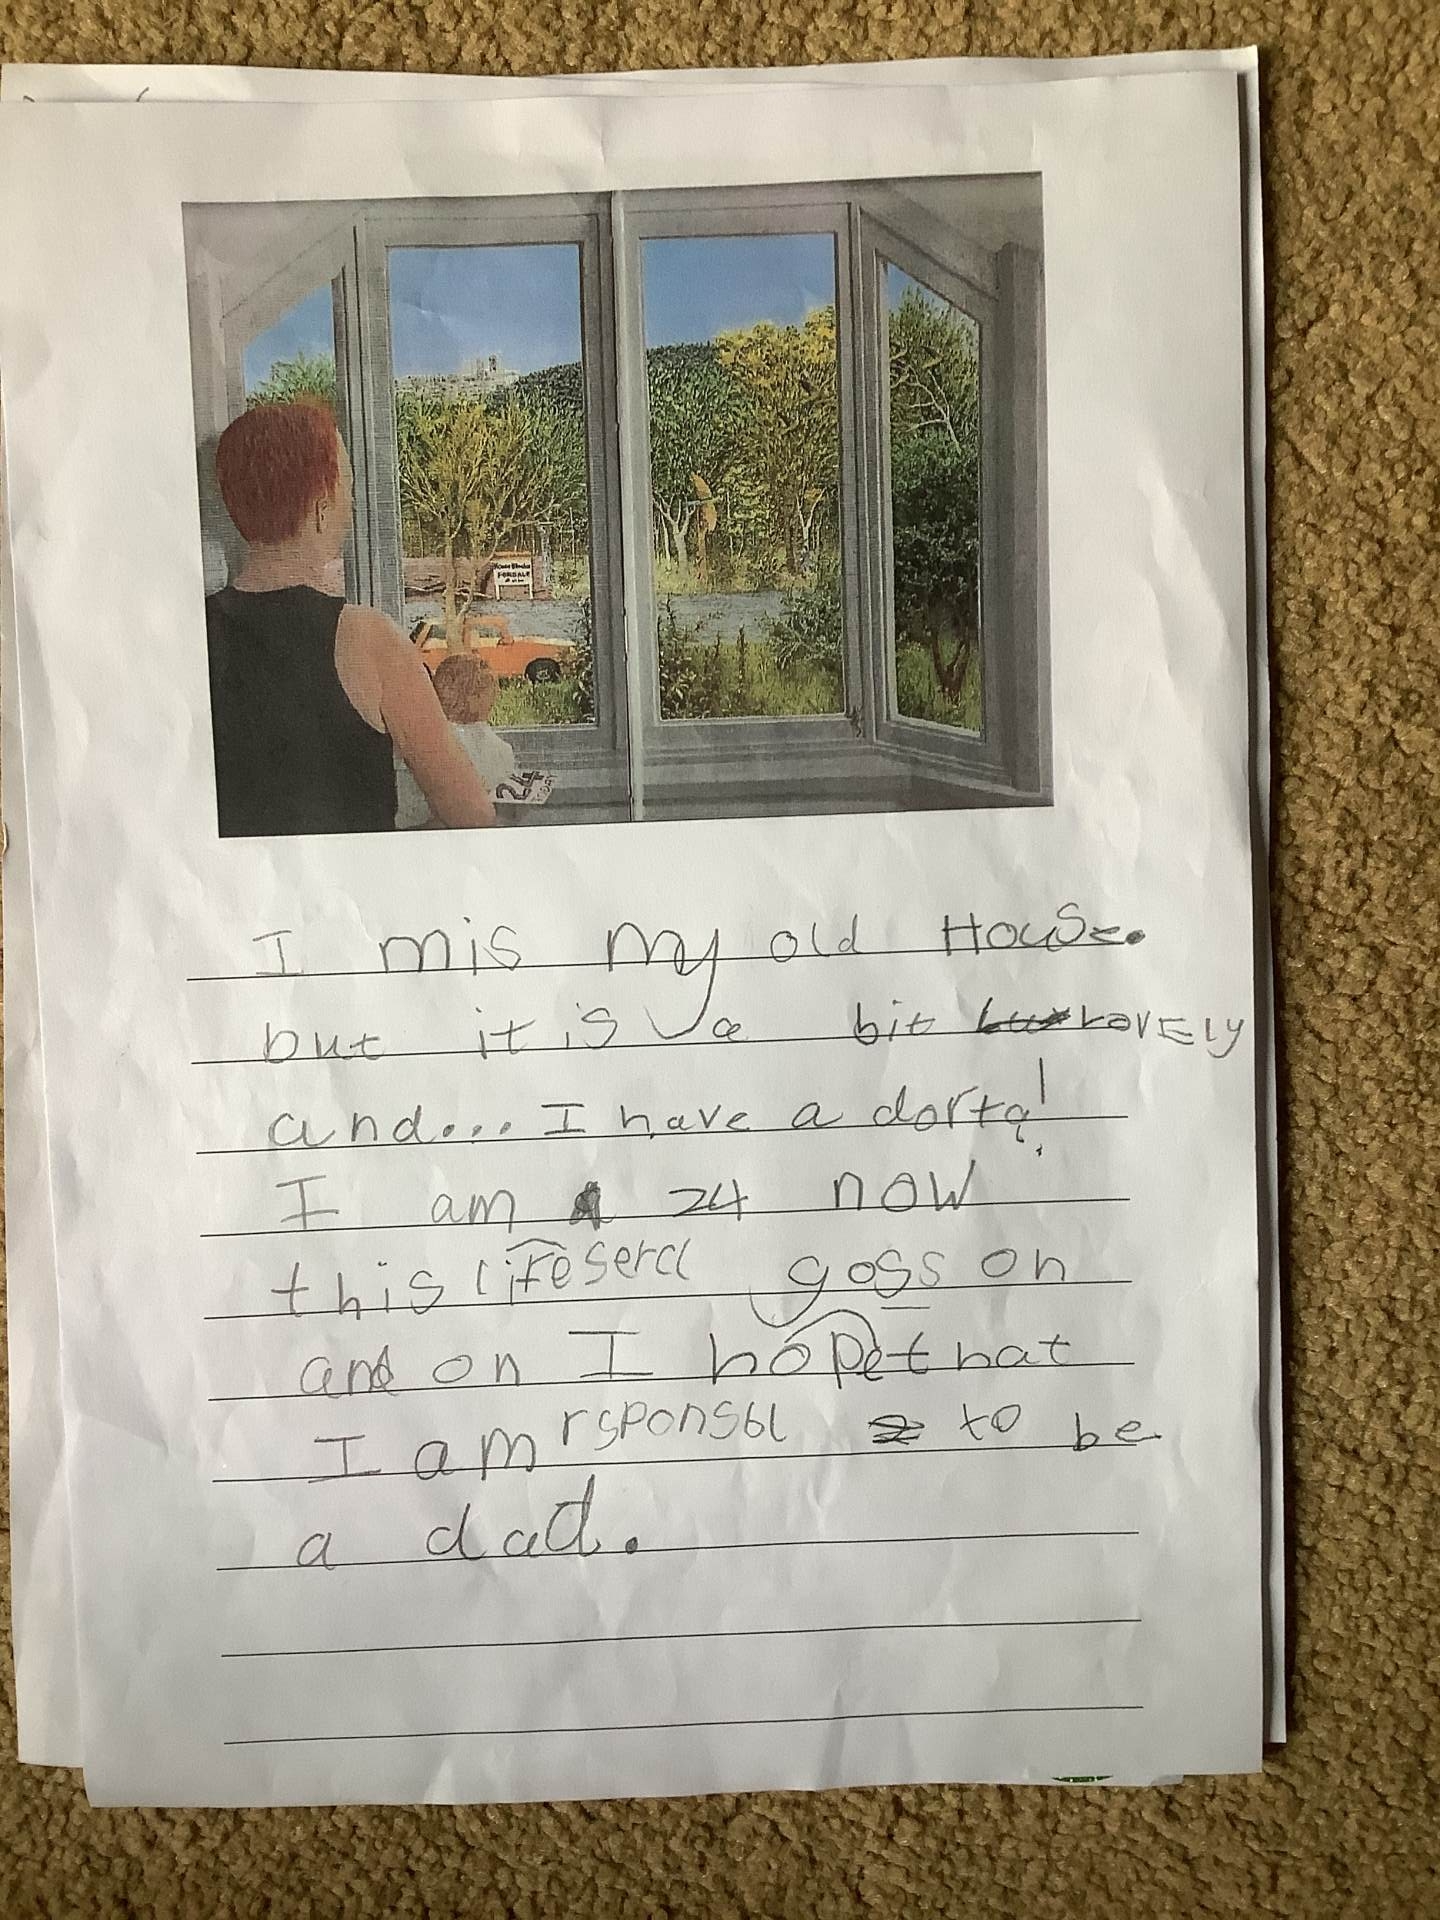 House Blocks
FORSALE
24
TODAY
I mis my old House.
but it is a bit lovEly
and... I have a dorta!
I am 24 now
this lifesercl goss on
and on I hope that
I am rsponsbl to be
a dad.